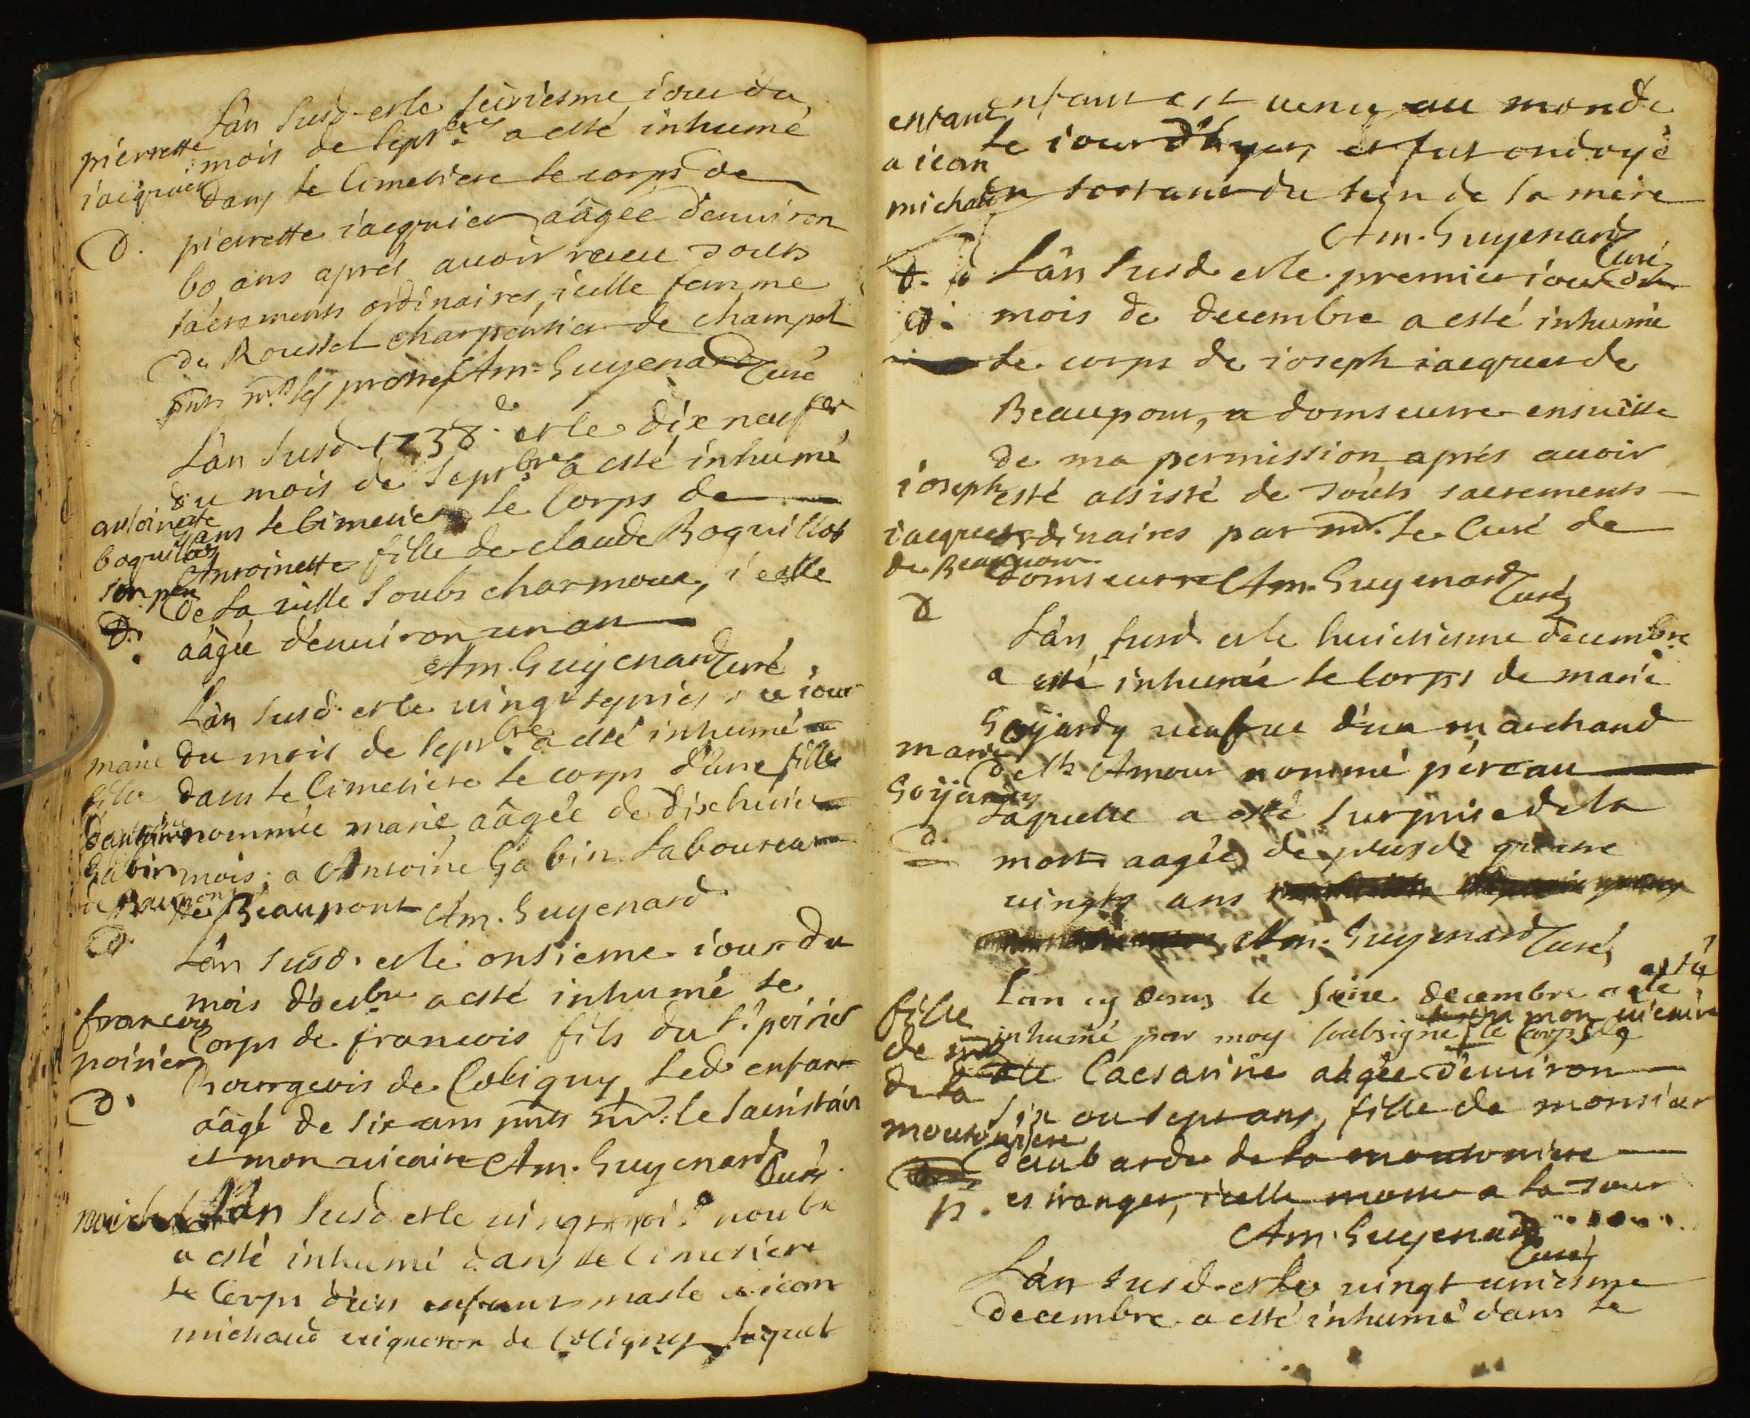 Lân susd. et le seiziesme jour du
mois de septbre a esté inhumé
pierrette
jacquier
dans le Cimetiere le corps de
D. pierrette jacquier aâgée d'environ
60 ans aprés avoir receu touts
sacrements ordinaires, icelle femme
de Roussel charpentier de champel
Am. Guyenard Curé
Lân susd. 1738 et le dix neufe
du mois de septbre a esté inhumé
antoinette
boquillot
dans le Cimetiere le Corps de
Antoinette fille de claude Boquillot
de la ville soubs charmoux, icelle
D. aâgée d'environ un an
Am. Guyenard Curé
Lân susd. et le vingt jour
marie
fille
d'antoine
Gabin
de Beaupont
D.
du mois de septbre a esté inhumé
dans le Cimetiere le corps d'une fille
nommée marie aâgée de dixhuict
mois, a Antoine Gabin Laboureur
de Beaupont Am. Guyenard
Lân susd. et le onsieme jour du
mois d'octbre a esté inhumé le
francois
poirier
D.
Corps de francois fils du Sr. poirier
Bourgeois de Coligny, led. enfant
aâgé de six ans pnts mr. le sacristain
et mon vicaire Am. Guyenard
Curé
Lân susd. et le vingt novbre
a esté inhumé dans le Cimetiere
le Corps d'un enfant masle a jean
michaud vigneron de Coligny, lequel
enfant
a jean
michaud
enfant est venu au monde
le jour d'hyer, et fut ondoyé
en sortant du sein de sa mere
Am. Guyenard
Curé
D. Lân susd. et le premier jour du
D. mois de decembre a esté inhumé
le corps de joseph jacques de
Beaupont, a domseurre ensuitte
de ma permission, aprés avoir
joseph
jacques
de Beaupont
D
esté assisté de touts sacrements
ordinaires par mr. le Curé de
domseurre Am. Guyenard
Curé
Lân susd. et le huictiesme decembre
a esté inhumé le Corps de marie
marie
Goyardy
D.
Goyardy veufve d'un marchand
de St. Amour nommé péreau
Laquelle a esté surprise de la
mort aagée de plus de quatre
vingts ans
Am. Guyenard Curé
Lan cy desus le seize decembre a esté
inhumé par moy soubsigné mon vicaire le Corps de
fille
de mr
de la
moutonniere
dlle Caesarine aâgée d'environ
six ou sept ans, fille de monsieur
daubarde de la moutonniere
p. estranger, icelle morte a la tour
Am. Guyenard
Curé
Lân susd. et le vingt uniesme
decembre a esté inhumé dans le